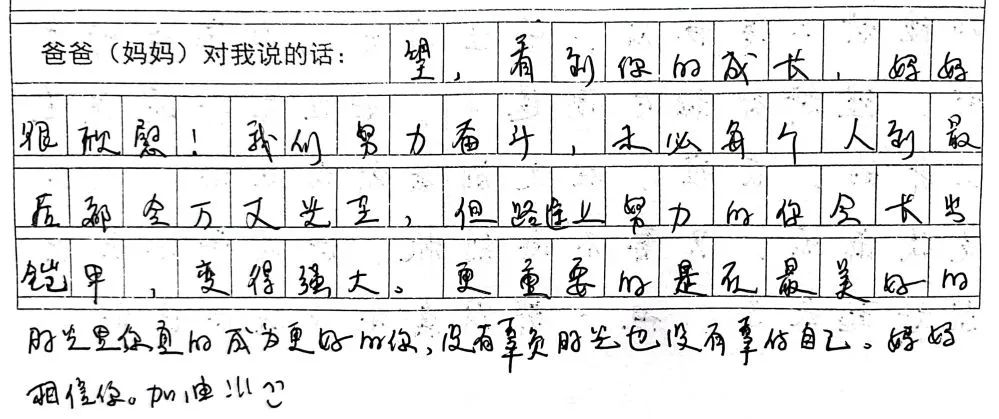 爸爸（妈妈）对我说的话： 望，看到你的成长，妈妈
很欣慰！我们努力奋斗，未必每个人到最
后都会万丈光芒，但路途上努力的你会长出
铠甲，变得强大。更重要的是在最美好的
时光里你真的成为更好的你，没有辜负时光也没有辜负自己。妈妈
相信你。加油!!!